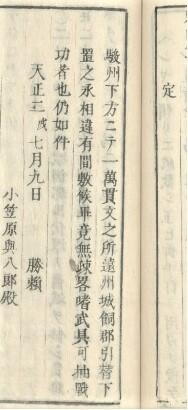 定
駿州下方ニテ一萬貫文之所遠州城飼郡引替下
置之不相違有間敷候畢竟無疎畧嗜武具可抽戰
功者也仍如件
天正二戌七月九日
勝頼
小笠原與八郎殿